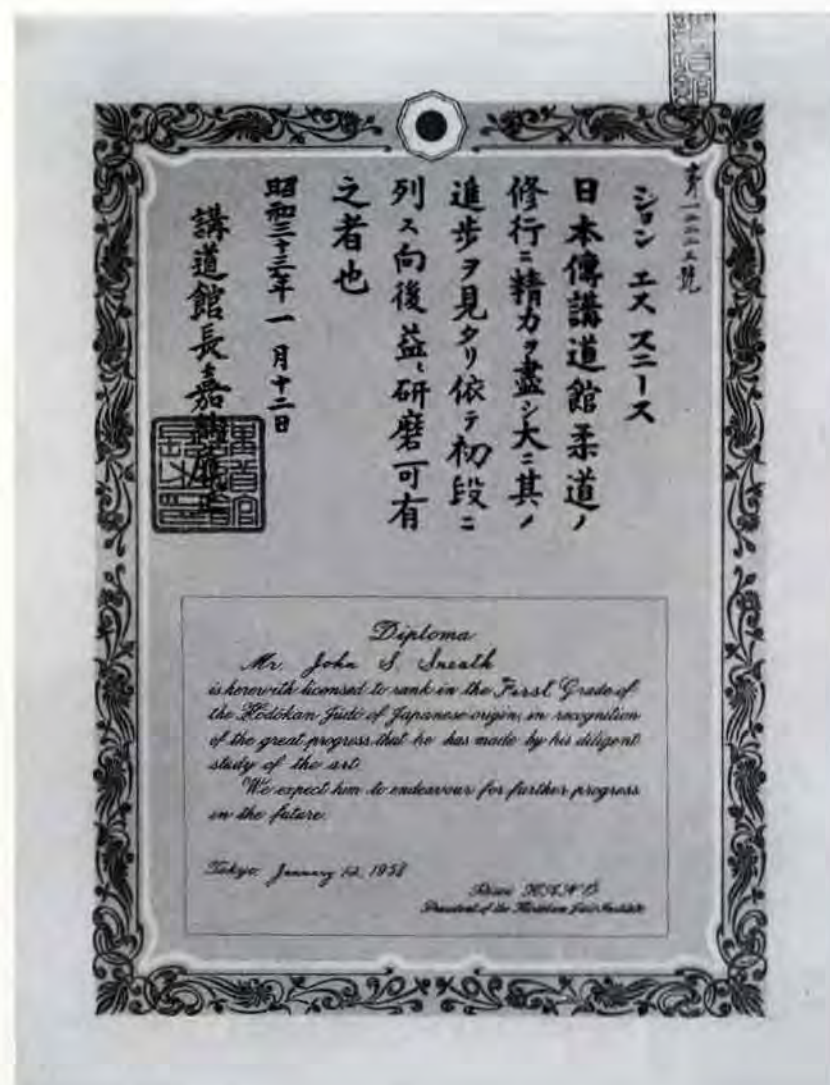 ジョン エス スニース
日本傳講道館柔道ノ
修行ニ精力ヲ盡シ大ニ其ノ
進歩ヲ見タリ依テ初段ニ
列ス向後益〻研磨可有
之者也
昭和三十三年一月十二日
講道館長嘉納履正
Diploma
Mr. John S. Sneath
is herewith licensed to rank in the First Grade of
the Kōdōkan Jūdō of Japanese origin, in recognition
of the great progress that he has made by his diligent
study of the art.
We expect him to endeavour for further progress
in the future.
Tokyo, January 12, 1958
Risei KANŌ
President of the Kōdōkan Jūdō Institute